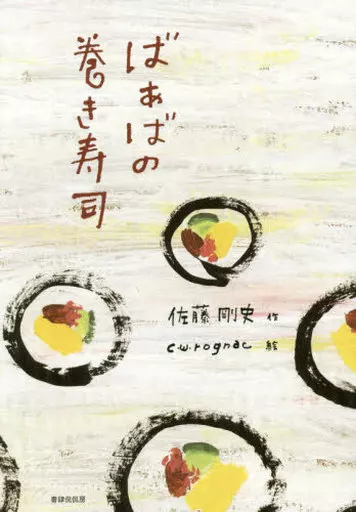 ばぁばの
巻き寿司
佐藤剛史 作
c.w.rognac 絵
書肆侃侃房